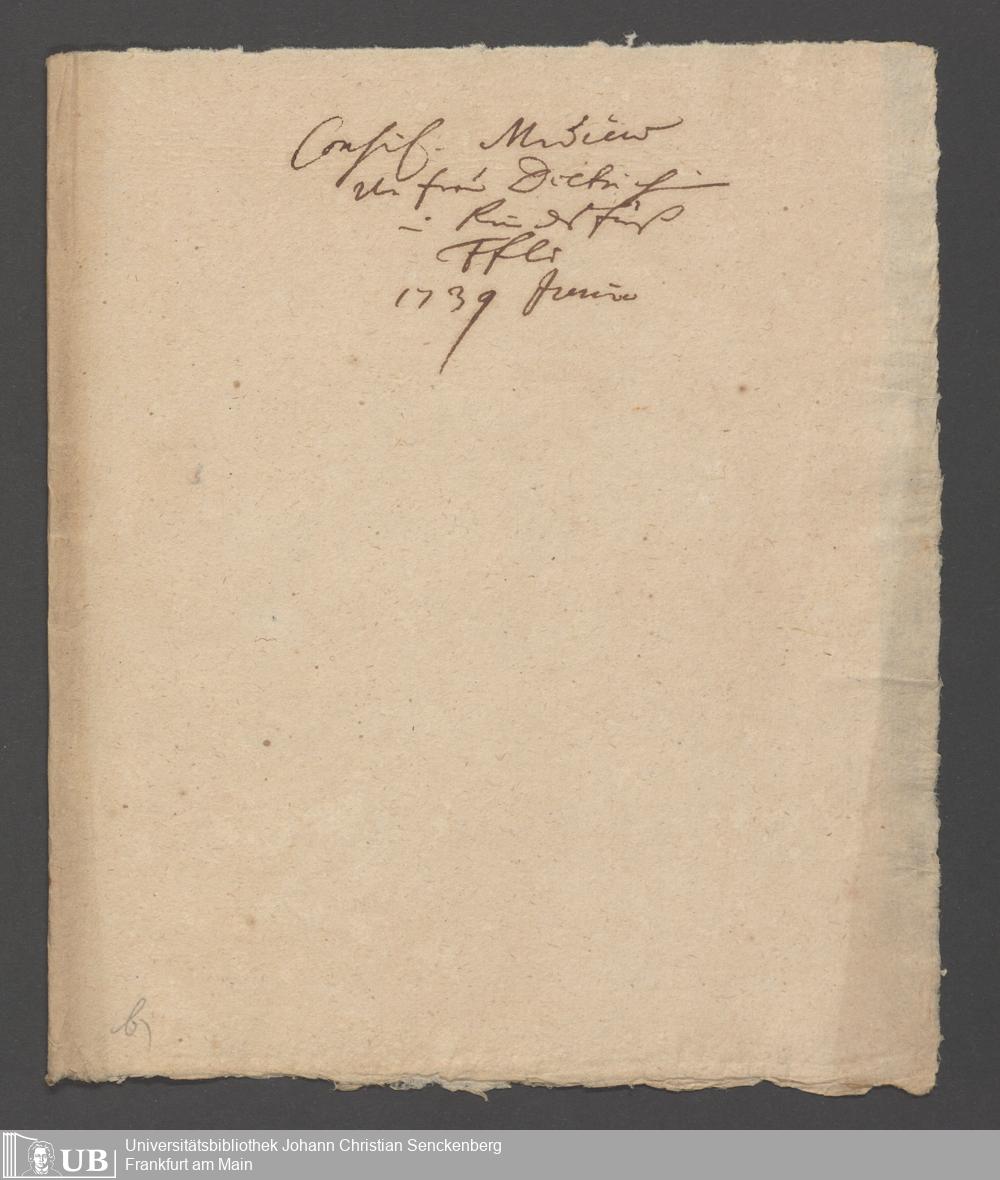 Consil. Medicum
Frau Dietrichin
Rindsfuß
Ffti
1739 Junio
b)
UB
Universitätsbibliothek Johann Christian Senckenberg
Frankfurt am Main